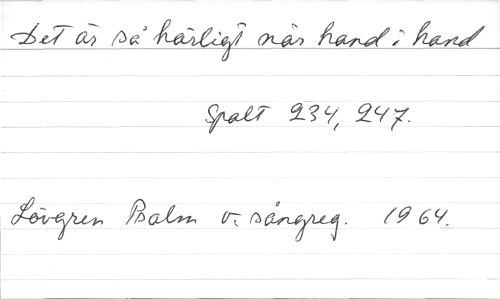 Det är så härligt när hand i hand
Spalt 234, 247.
Lövgren Psalm v. sångreg. 1964.